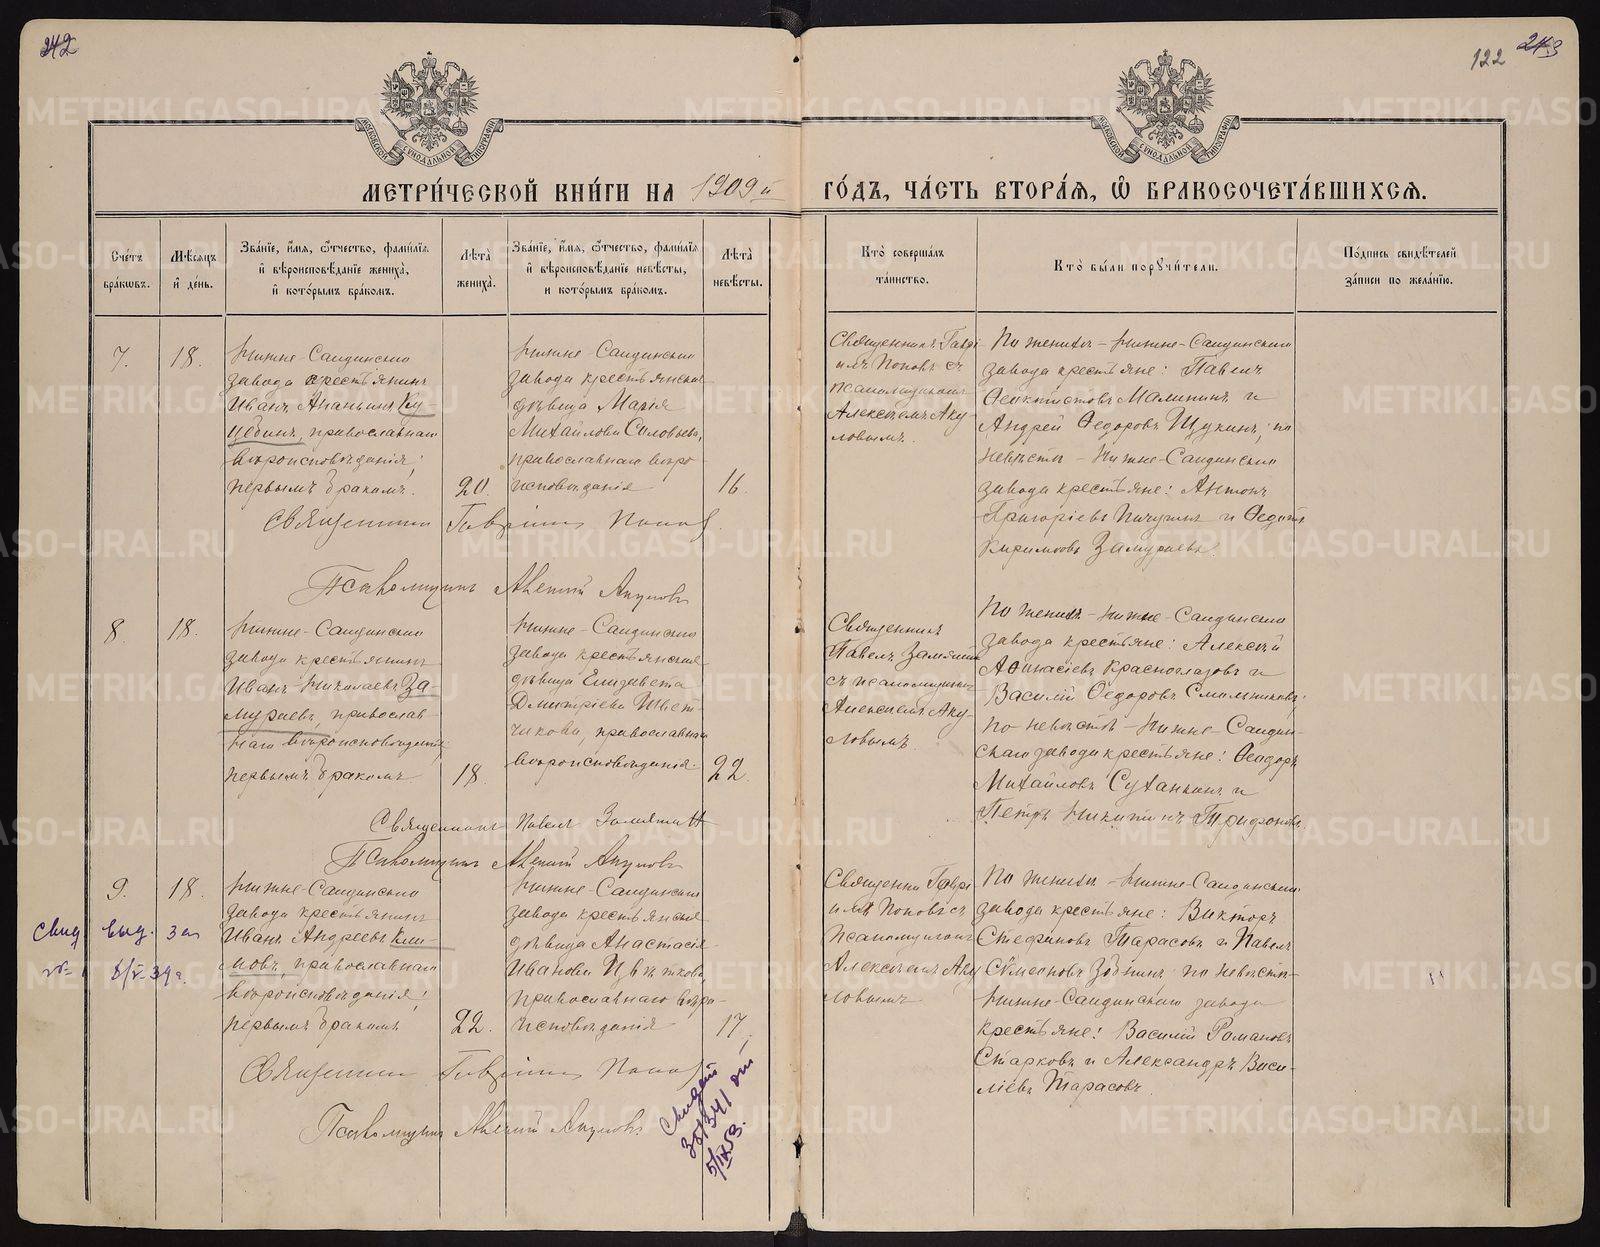 242
122 243
МЕТРИ́ЧЕСКОЙ КНИ́ГИ НА 1909й ГО́ДЪ, ЧА́СТЬ ВТОРА́Я, Ѡ БРАКОСОЧЕТА́ВШИХСЯ.
МОСКОВСКОЙ СѴНОДАЛЬНОЙ ТИПОГРАФІИ
МОСКОВСКОЙ СѴНОДАЛЬНОЙ ТИПОГРАФІИ
Сче́тъ бра́кωвъ.
Мѣ́сяцъ и҆ де́нь.
Зва́нїе, и҆́мя, ѻ҆́тчество, фами́лїя и҆ вѣроисповѣ́данїе жениха̀, и҆ кото́рымъ бра́комъ.
Лѣ́та жениха̀.
Зва́нїе, и҆́мя, ѻ҆́тчество, фами́лїя и҆ вѣроисповѣ́данїе невѣ́сты, и кото́рымъ бра́комъ.
Лѣ́та невѣ́сты.
Кто̀ соверша́лъ та́инство.
Кто̀ бы́ли порꙋчи́тели.
По́дпись свидѣ́телей за́писи по жела́нїю.
7.
18.
Нижне-Салдинскаго
завода крестьянинъ
Иванъ Ананьинъ
православнаго
вѣроисповѣданія;
первымъ бракомъ.
20.
Нижне-Салдинскаго
завода крестьянская
дѣвица Марія
Михайлова Соловьева,
православнаго вѣро
исповѣданія
16.
Священникъ Гаврі
илъ Поповъ съ
псаломщикомъ
Алексѣемъ Аку
ловымъ.
По женихѣ – Нижне-Салдинскаго
завода крестьяне: Павелъ
Ѳеоктистовъ Малыгинъ и
Андрей Ѳедоровъ Щукинъ; по
невѣстѣ – Нижне-Салдинскаго
завода крестьяне: Антонъ
Григорьевъ Пичугинъ и Ѳедотъ
Замураевъ.
Священникъ Гавріилъ Поповъ
Псаломщикъ Алексій Акуловъ
8.
18.
Нижне-Салдинскаго
завода крестьянинъ
Иванъ Николаевъ За-
мураевъ, православ-
наго вѣроисповѣданія,
первымъ бракомъ
18.
Нижне-Салдинскаго
завода крестьянская
дѣвица Елизавета
Дмитріева
православнаго
вѣроисповѣданія.
22.
Священникъ
Павелъ Замятинъ
съ псаломщикомъ
Алексѣемъ Аку-
ловымъ
По женихѣ – Нижне-Салдинскаго
завода крестьяне: Алексѣй
Аѳанасіевъ Красноглазовъ и
Василій Ѳедоровъ Смольниковъ;
по невѣстѣ – Нижне-Салдин-
скаго завода крестьяне: Ѳеодоръ
Михайловъ Суханкинъ и
Петръ Никитинъ Трифоновъ
Священникъ Павелъ Замятинъ
Псаломщикъ Алексій Акуловъ
9.
18.
Нижне-Салдинскаго
завода крестьянинъ
Иванъ Андреевъ Кли-
мовъ, православнаго
вѣроисповѣданія;
первымъ бракомъ
22.
Нижне-Салдинскаго
завода крестьянская
дѣвица Анастасія
Иванова Цвѣткова,
православнаго вѣро-
исповѣданія
17
Священникъ Гаврі
илъ Поповъ съ
псаломщикомъ
Алексѣемъ Аку
ловымъ
По женихѣ – Нижне-Салдинскаго
завода крестьяне: Викторъ
Стефановъ Тарасовъ и Павелъ
Сѵмеоновъ Зобнинъ; по невѣстѣ –
Нижне-Салдинскаго завода
крестьяне: Василій Романовъ
Старковъ и Александръ Васи-
ліевъ Тарасовъ
Свид. выд. за
№ 1 8/V-34г.
Священникъ Гавріилъ Поповъ
Псаломщикъ Алексій Акуловъ
5/IX53.
METRIKI.GASO-URAL.RU